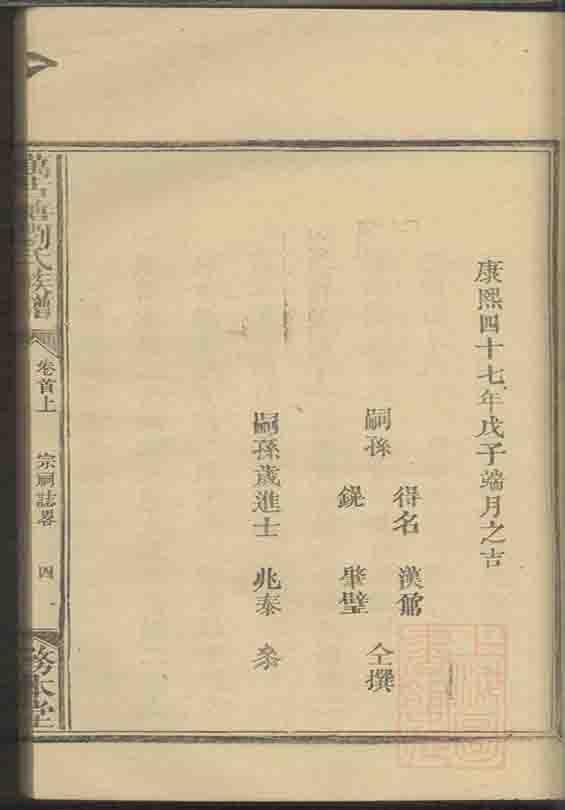 康熙四十七年戊子端月之吉
得名 漢
嗣孫 仝撰
鋧 肇璧
嗣孫歲進士 兆泰 叅
劉氏族譜
卷首上
宗祠誌畧
四
務本堂